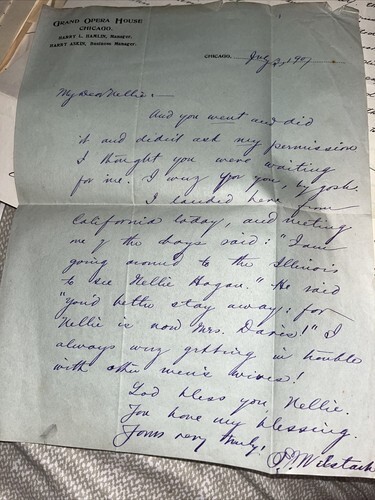 GRAND OPERA HOUSE
CHICAGO.
HARRY L. HAMLIN, Manager.
HARRY ASKIN, Business Manager.
CHICAGO, July 2, 1907
My dear Nellie:—
And you went and did
it and didn't ask my permission
I thought you were waiting
for me. I wuz for you, by gosh.
I landed here from
California today, and meeting
one of the boys said: "I am
going around to the Illinois
to see Nellie Hogan." He said
"You'd bettie stay away: for
Nellie is now Mrs. Davis!" I
always wuz gitting in trouble
with other men's wives!
God bless you, Nellie.
You have my blessing.
Yours very truly,
Wilstach